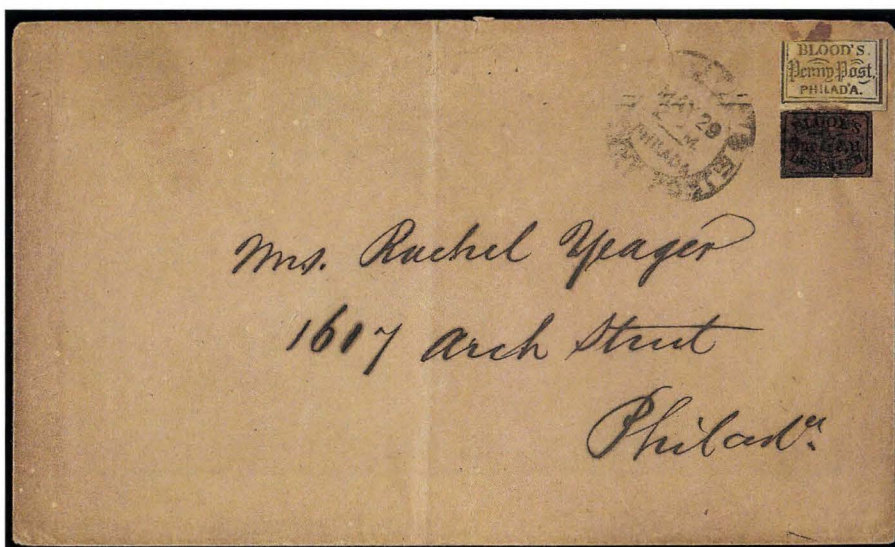 BLOOD'S
Penny Post,
PHILAD'A.
MAY 29
PHILADA
Mrs. Rachel Yeager
1607 Arch Street
Philada